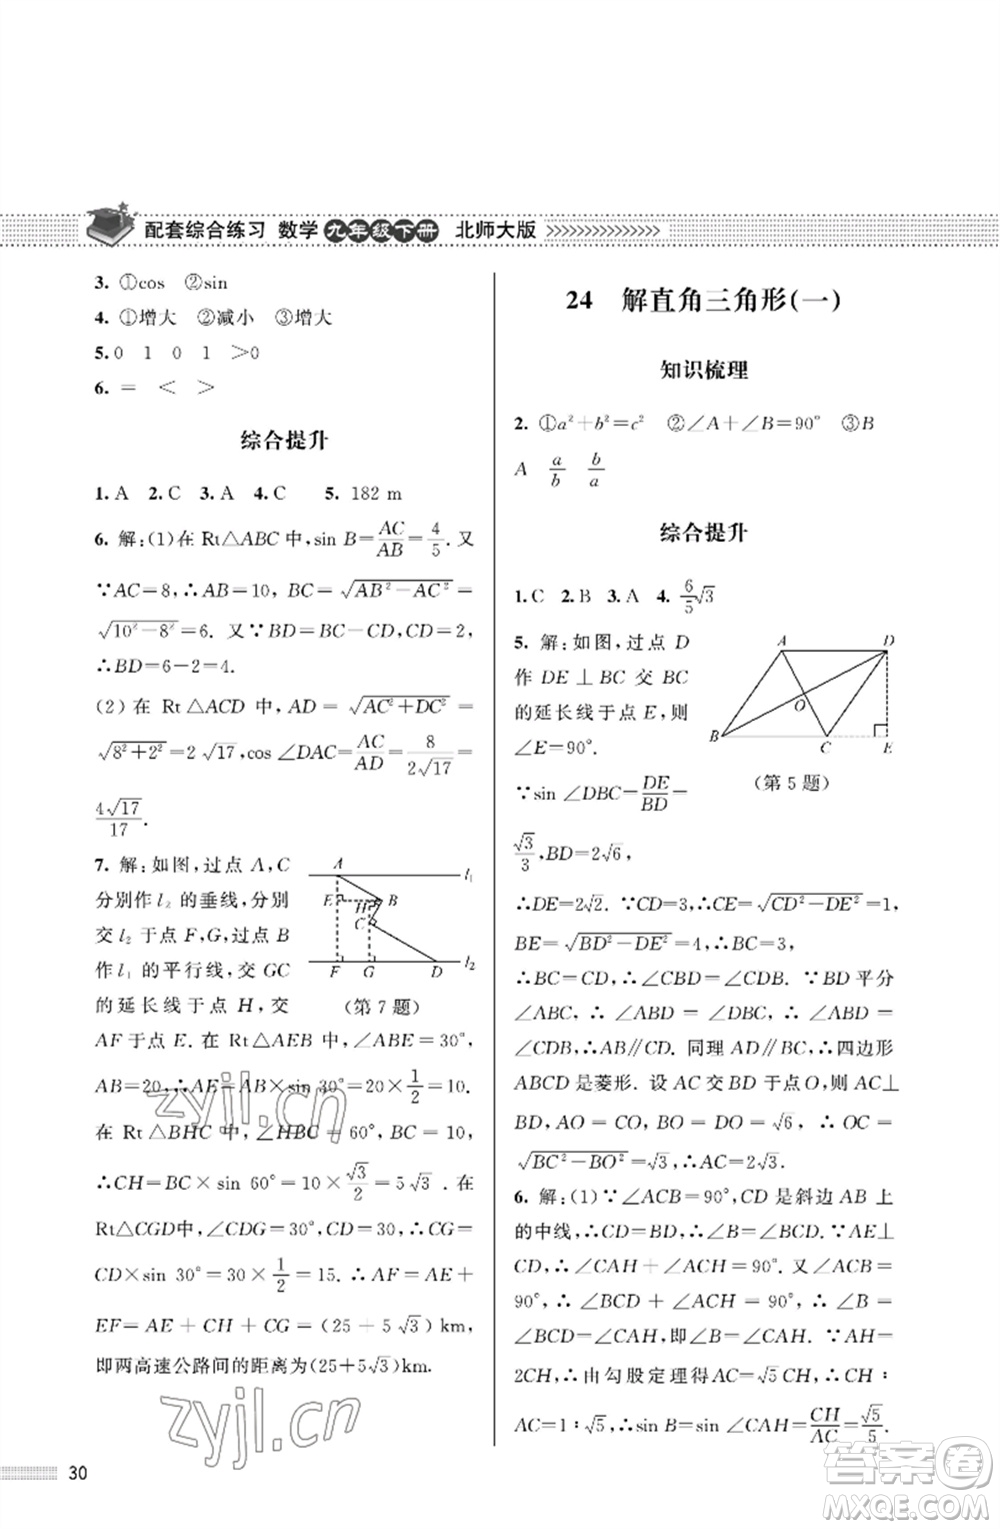 配套综合练习 数学九年级下册 北师大版
3. ①cos ②sin
4. ①增大 ②减小 ③增大
5. 0 1 0 1 >0
6. = < >
综合提升
1. A 2. C 3. A 4. C 5. 182 m
6. 解:(1)在 Rt△ABC 中,sin B=AC/AB=4/5. 又
∵AC=8,∴AB=10, BC=√(AB²-AC²)=
√(10²-8²)=6. 又∵BD=BC-CD,CD=2,
∴BD=6-2=4.
(2) 在 Rt △ACD 中, AD = √(AC²+DC²) =
√(8²+2²)=2√17,cos ∠DAC=AC/AD=8/(2√17)=
4√17/17.
7. 解:如图,过点 A,C
分别作 l₂ 的垂线,分别
交 l₂ 于点 F,G,过点 B
作 l₁ 的平行线,交 GC
的延长线于点 H,交
A l₁
E B
H
C
F G D l₂
(第 7 题)
AF 于点 E. 在 Rt△AEB 中,∠ABE=30°,
AB=20,∴AE=AB×sin 30°=20×1/2=10.
在 Rt△BHC 中,∠HBC=60°,BC=10,
∴CH=BC×sin 60°=10×√3/2=5√3 . 在
Rt△CGD中,∠CDG=30°,CD=30,∴CG=
CD×sin 30°=30×1/2=15.∴AF=AE+
EF=AE+CH+CG=(25+5√3)km,
即两高速公路间的距离为(25+5√3)km.
30
24 解直角三角形(一)
知识梳理
2. ①a²+b²=c² ②∠A+∠B=90° ③B
A a/b b/a
综合提升
1. C 2. B 3. A 4. 6/5√3
5. 解:如图,过点 D
作 DE⊥BC 交 BC
的延长线于点 E,则
∠E=90°.
∵sin ∠DBC=DE/BD=
A D
O
B C E
(第 5 题)
√3/3,BD=2√6,
∴DE=2√2. ∵CD=3,∴CE=√(CD²-DE²)=1,
BE=√(BD²-DE²)=4,∴BC=3,
∴BC=CD,∴∠CBD=∠CDB. ∵BD 平分
∠ABC, ∴ ∠ABD = ∠DBC, ∴ ∠ABD =
∠CDB,∴AB∥CD. 同理 AD∥BC,∴四边形
ABCD 是菱形. 设 AC 交 BD 于点O,则 AC⊥
BD, BO = DO = √6, ∴ OC =
√(BC²-BO²)=√3,∴AC=2√3.
6. 解:(1)∵∠ACB=90°,CD 是斜边 AB 上
的中线,∴CD=BD,∴∠B=∠BCD. ∵AE⊥
CD,∴∠CAH+∠ACH=90°. 又∠ACB=
90°, ∴ ∠BCD + ∠ACH = 90°, ∴ ∠B =
∠BCD=∠CAH,即∠B=∠CAH. ∵AH=
2CH,∴由勾股定理得AC=√5 CH,∴CH∶
AC=1∶√5,∴sin B=sin ∠CAH=CH/AC=√5/5.
zyjl.cn
zyjl.cn
答案圈
MXQE.COM